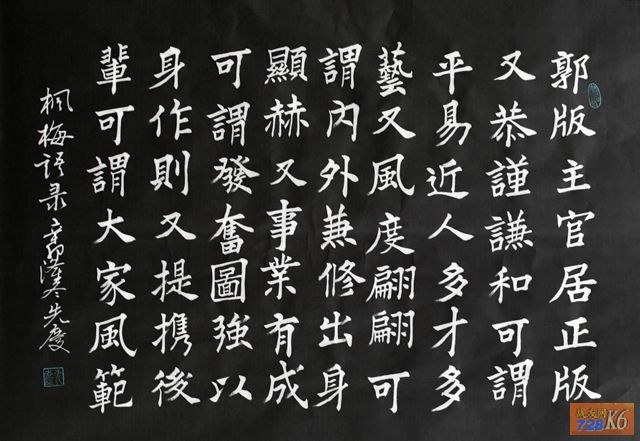 郭版主官居正版
又恭謹謙和可謂
平易近人多才多
藝又風度翩翩可
謂内外兼修出身
顯赫又事業有成
可謂發奮圖強以
身作則又提携後
輩可謂大家風範
枫梅語录
战友网
728K6